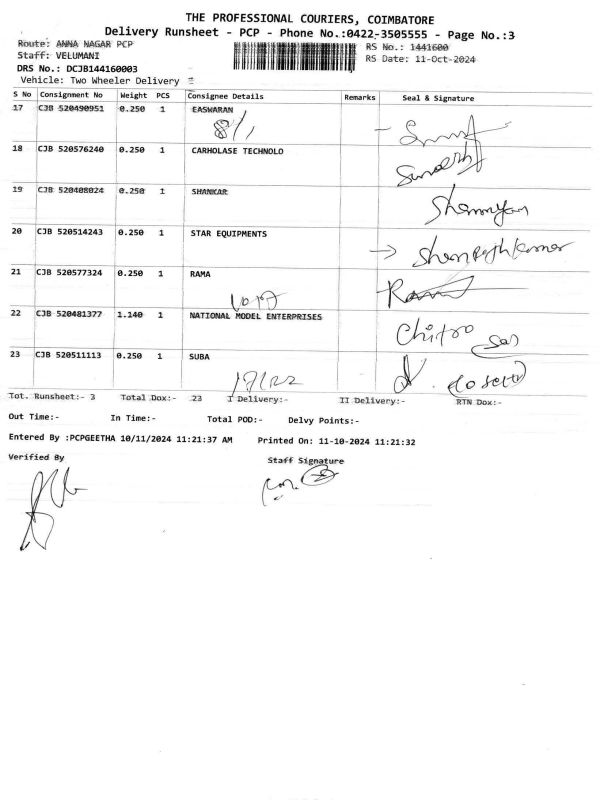 THE PROFESSIONAL COURIERS, COIMBATORE
Delivery Runsheet - PCP - Phone No.:0422-3505555 - Page No.:3
Route: ANNA NAGAR PCP RS No.: 1441600
Staff: VELUMANI RS Date: 11-Oct-2024
DRS No.: DCJB144160003
Vehicle: Two Wheeler Delivery
S No Consignment No Weight PCS Consignee Details Remarks Seal & Signature
17 CJB 520490951 0.250 1 EASWARAN
8/1
18 CJB 520576240 0.250 1 CARHOLASE TECHNOLO
19 CJB 520408024 0.250 1 SHANKAR
20 CJB 520514243 0.250 1 STAR EQUIPMENTS
21 CJB 520577324 0.250 1 RAMA
22 CJB 520481377 1.140 1 NATIONAL MODEL ENTERPRISES
Chitra
23 CJB 520511113 0.250 1 SUBA
Tot. Runsheet:- 3 Total Dox:- 23 I Delivery:- II Delivery:- RTN Dox:-
Out Time:- In Time:- Total POD:- Delvy Points:-
Entered By :PCPGEETHA 10/11/2024 11:21:37 AM Printed On: 11-10-2024 11:21:32
Verified By Staff Signature